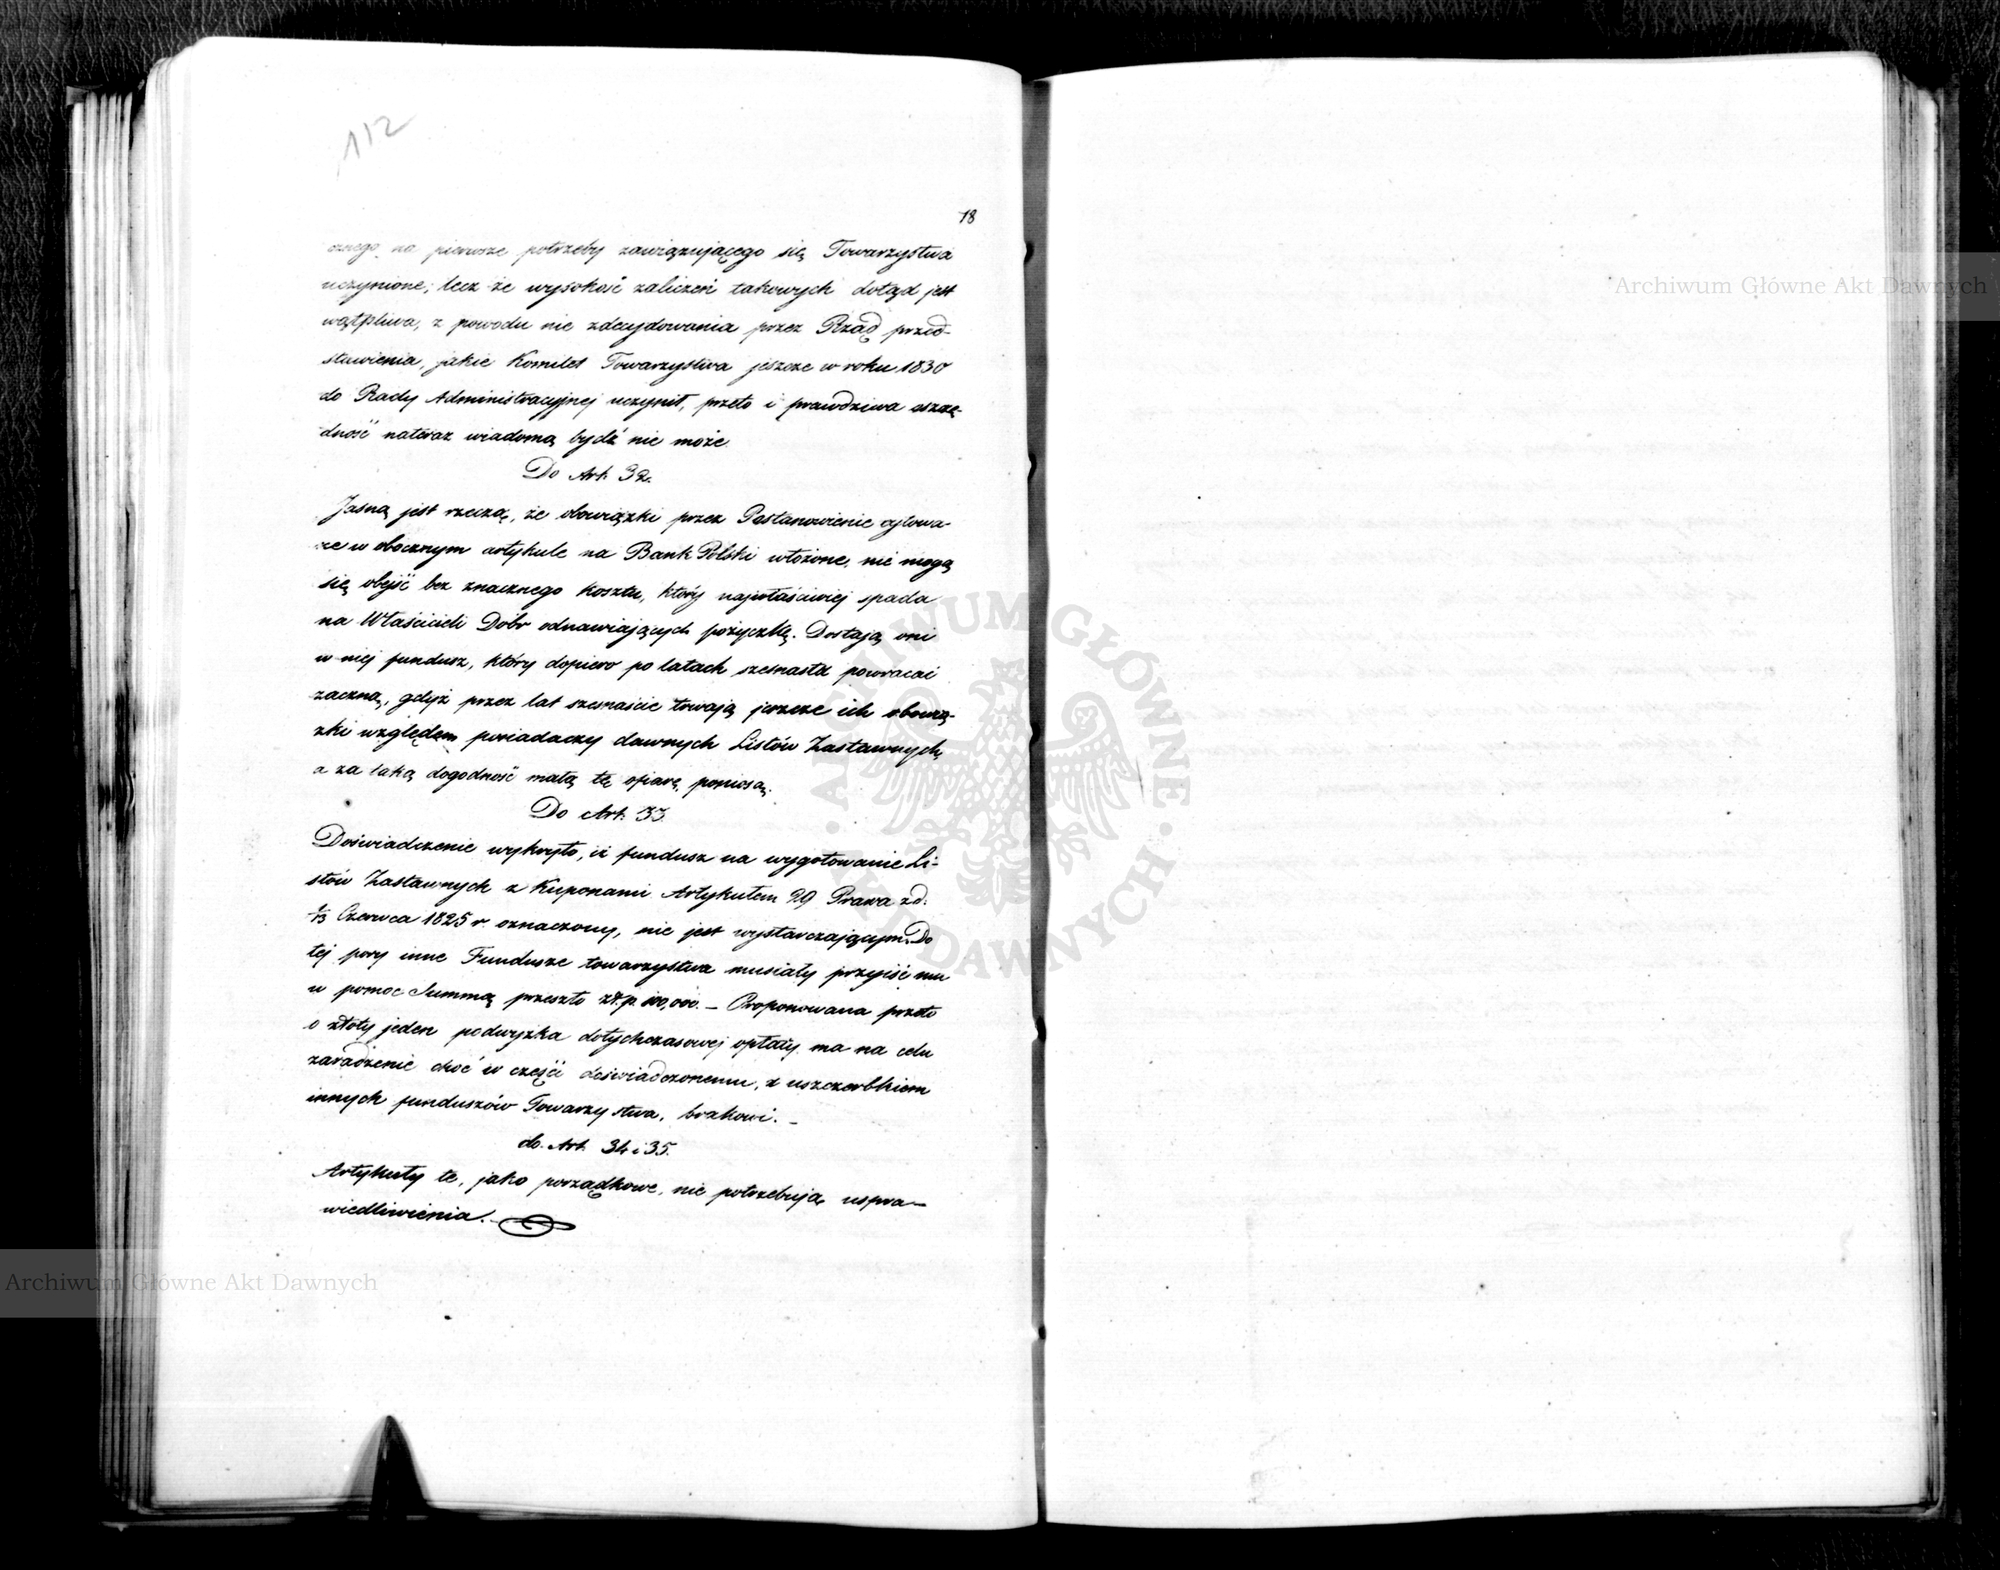 112
18
cznego na pierwsze potrzeby zawiązującego się Towarzystwa
uczynione; lecz że wysokość zaliczeń takowych dotąd jest
wątpliwa, z powodu nie zdecydowania przez Rząd przed-
stawienia, jakie Komitet Towarzystwa jeszcze w roku 1830
do Rady Administracyjnej uczynił, przeto i prawdziwa oszczę-
dność nateraz wiadomą bydź nie może
Do Art. 32.
Jasną jest rzeczą, że obowiązki przez Postanowienie cytowa-
ne w obocznym artykule na Bank Polski włożone, nie mogą
się obejść bez znacznego kosztu, który najwłaściwiej spada
na Właścicieli Dóbr odnawiających pożyczkę. Dostają oni
w niej fundusz, który dopiero po latach szesnastu powracać
zaczną, gdyż przez lat szesnaście trwają jeszcze ich obowią-
zki względem posiadaczy dawnych Listów Zastawnych,
a za taką dogodność małą tę ofiarę, poniosą.
Do Art. 33.
Doświadczenie wykryło, iż fundusz na wygotowanie Li-
stów Zastawnych z Kuponami Artykułem 29 Prawa zd:
1/13 Czerwca 1825 r. oznaczony, nie jest wystarczającym. Do
tej pory inne Fundusze towarzystwa musiały przyiść mu
w pomoc Summą przeszło zł.p. 100,000. – Proponowana przeto
o złoty jeden podwyżka dotychczasowej opłaty ma na celu
zaradzenie choć w części doświadczonemu, z uszczerbkiem
innych funduszów Towarzystwa, brakowi. –
do. Art. 34 i 35.
Artykuły te, jako porządkowe, nie potrzebują uspra-
wiedliwienia.
Archiwum Główne Akt Dawnych
Archiwum Główne Akt Dawnych
ARCHIWUM GŁÓWNE · AKT DAWNYCH ·